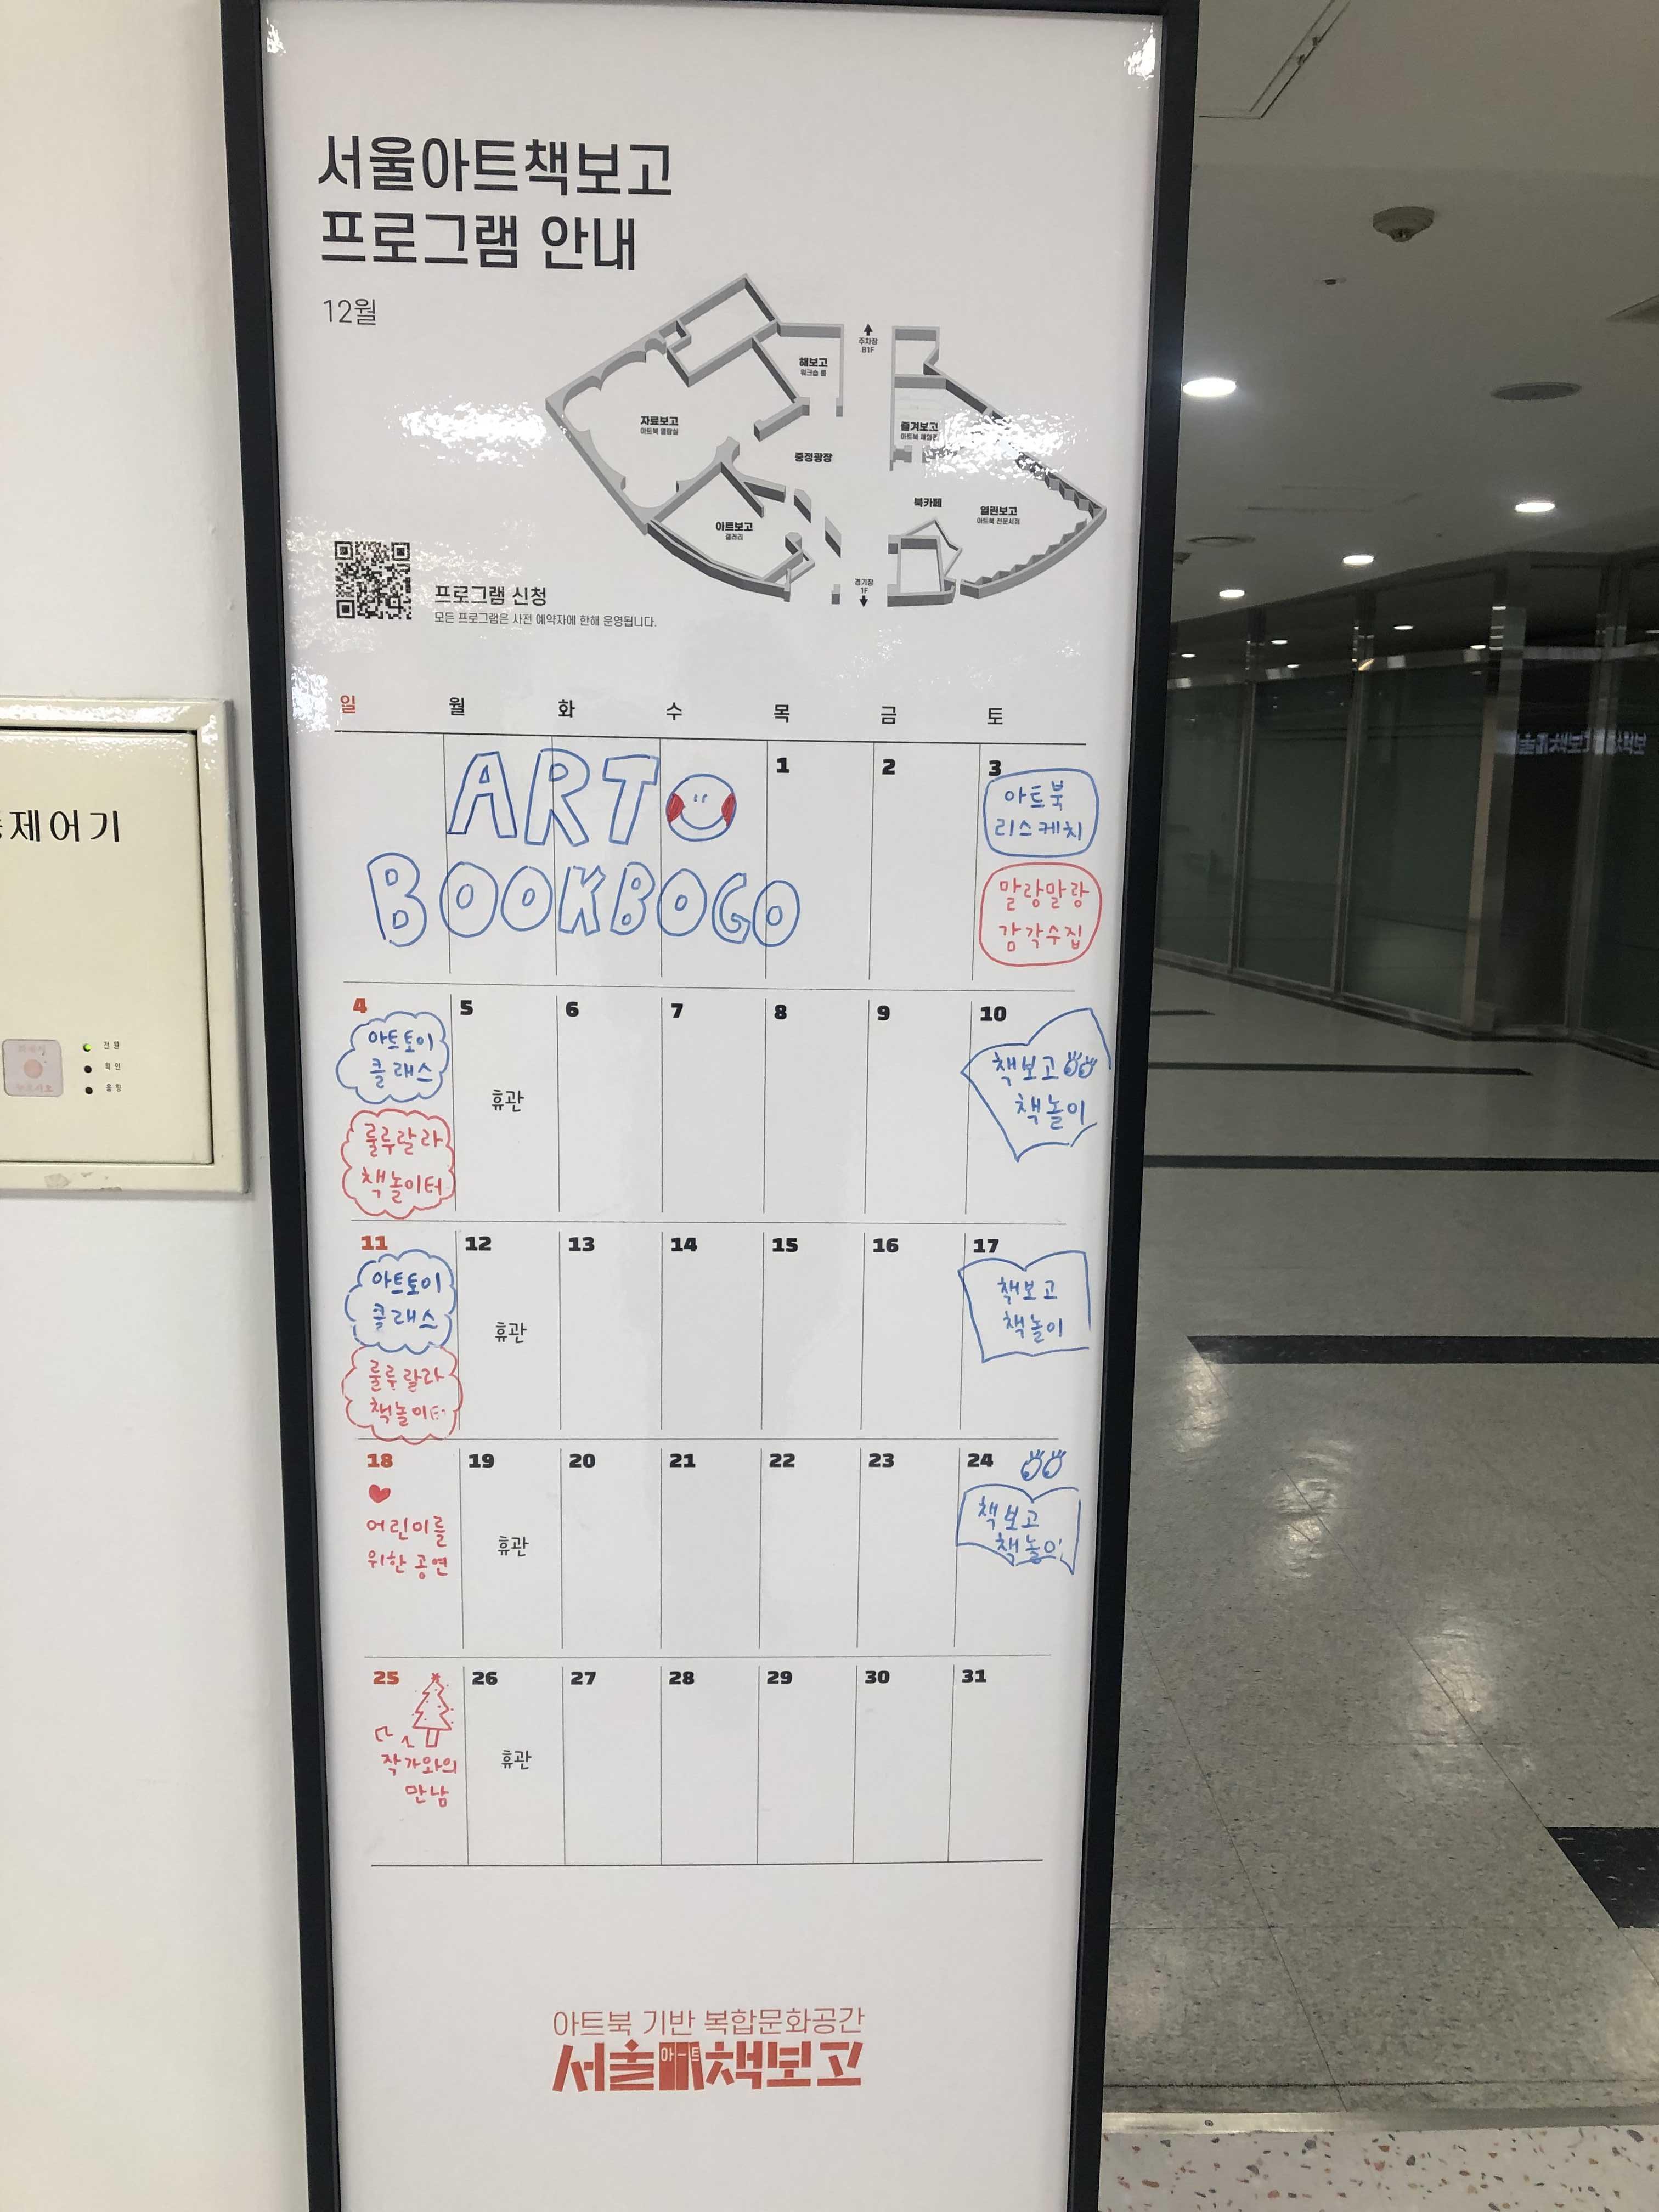 서울아트책보고
프로그램 안내
12월
주차장
B1F
해보고
워크숍 룸
자료보고
아트북 열람실
즐겨보고
중정광장
북카페
열린보고
아트북 전문서점
아트보고
갤러리
경기장
1F
프로그램 신청
모든 프로그램은 사전 예약자에 한해 운영됩니다.
일 월 화 수 목 금 토
ART
BOOKBOGO
1 2 3
아트북
리스케치
말랑말랑
감각수집
4 5 6 7 8 9 10
아트토이
클래스
룰루랄라
책놀이터
휴관
책보고
책놀이
11 12 13 14 15 16 17
아트토이
클래스
룰루랄라
책놀이터
휴관
책보고
책놀이
18 19 20 21 22 23 24
어린이를
위한 공연
휴관
책보고
책놀이
25 26 27 28 29 30 31
작가와의
만남
휴관
아트북 기반 복합문화공간
서울아트책보고
제어기
전원
확인